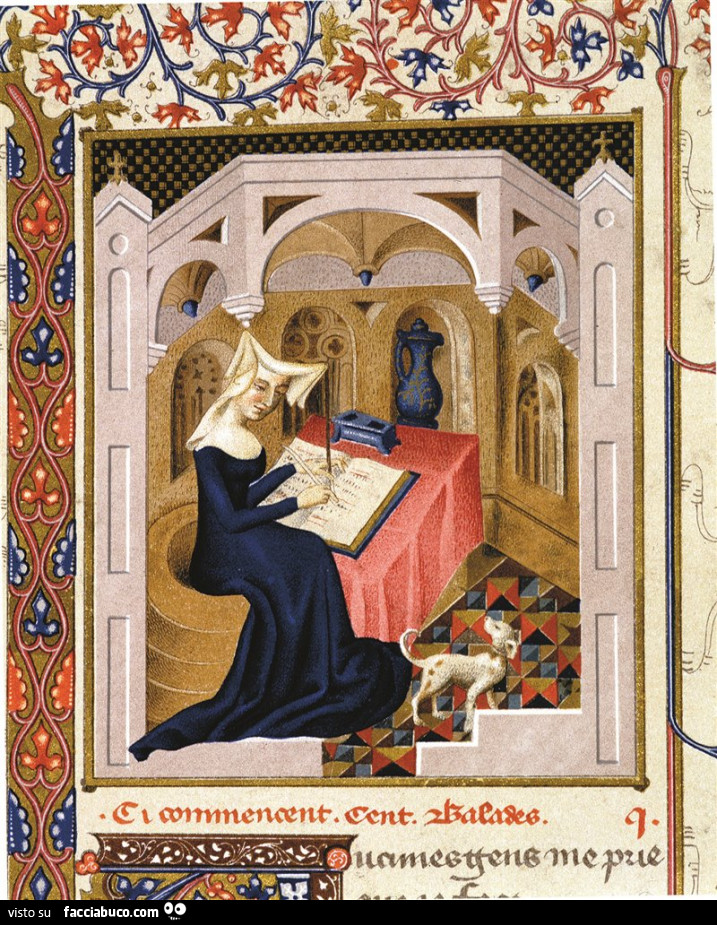 · Ci commencent. Cent. Balades. q.
ucunes gens me prie
visto su facciabuco.com